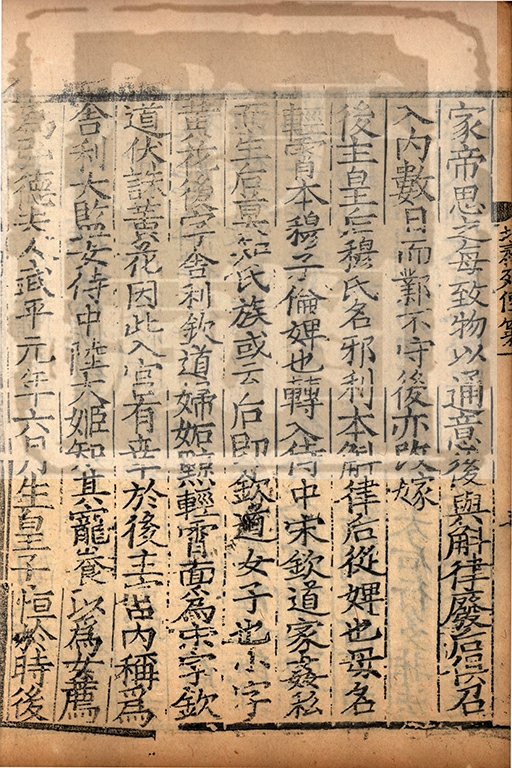 家帝思之母致物以通意後與斛律廢后俱召
入內數日而鄴不守後亦改嫁
後主皇后穆氏名邪利本斛律后從婢也母名
輕霄本穆子倫婢也轉入侍中宋欽道家姦私
而生后莫知氏族或云后即欽道女子也小字
黃花後字舍利欽道婦妬黥輕霄面為宋字欽
道伏誅黃花因此入宮有幸於後主宮內稱為
舍利太監女侍中陸太姬知其寵養以為女薦
為弘德夫人武平元年六月生皇子恒於時後